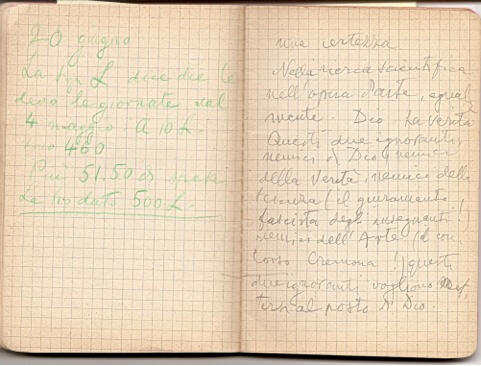 20 giugno
La sig. L dice che le
devo le giornate dal
4 maggio. A 10 L.
sono 460
Più 51.50 di spese
Le ho dato 500 L.
una certezza
Nella ricerca scientifica
nell'opera d'arte, egual
mente. Dio. La verità
Questi due ignoranti,
nemici di Dio, nemici
della Verità, nemici della
scienza (il giuramento
fascista degli insegnanti!)
nemici dell'Arte (il con
corso Cremona!) questi
due ignoranti vogliono met
tersi al posto di Dio.